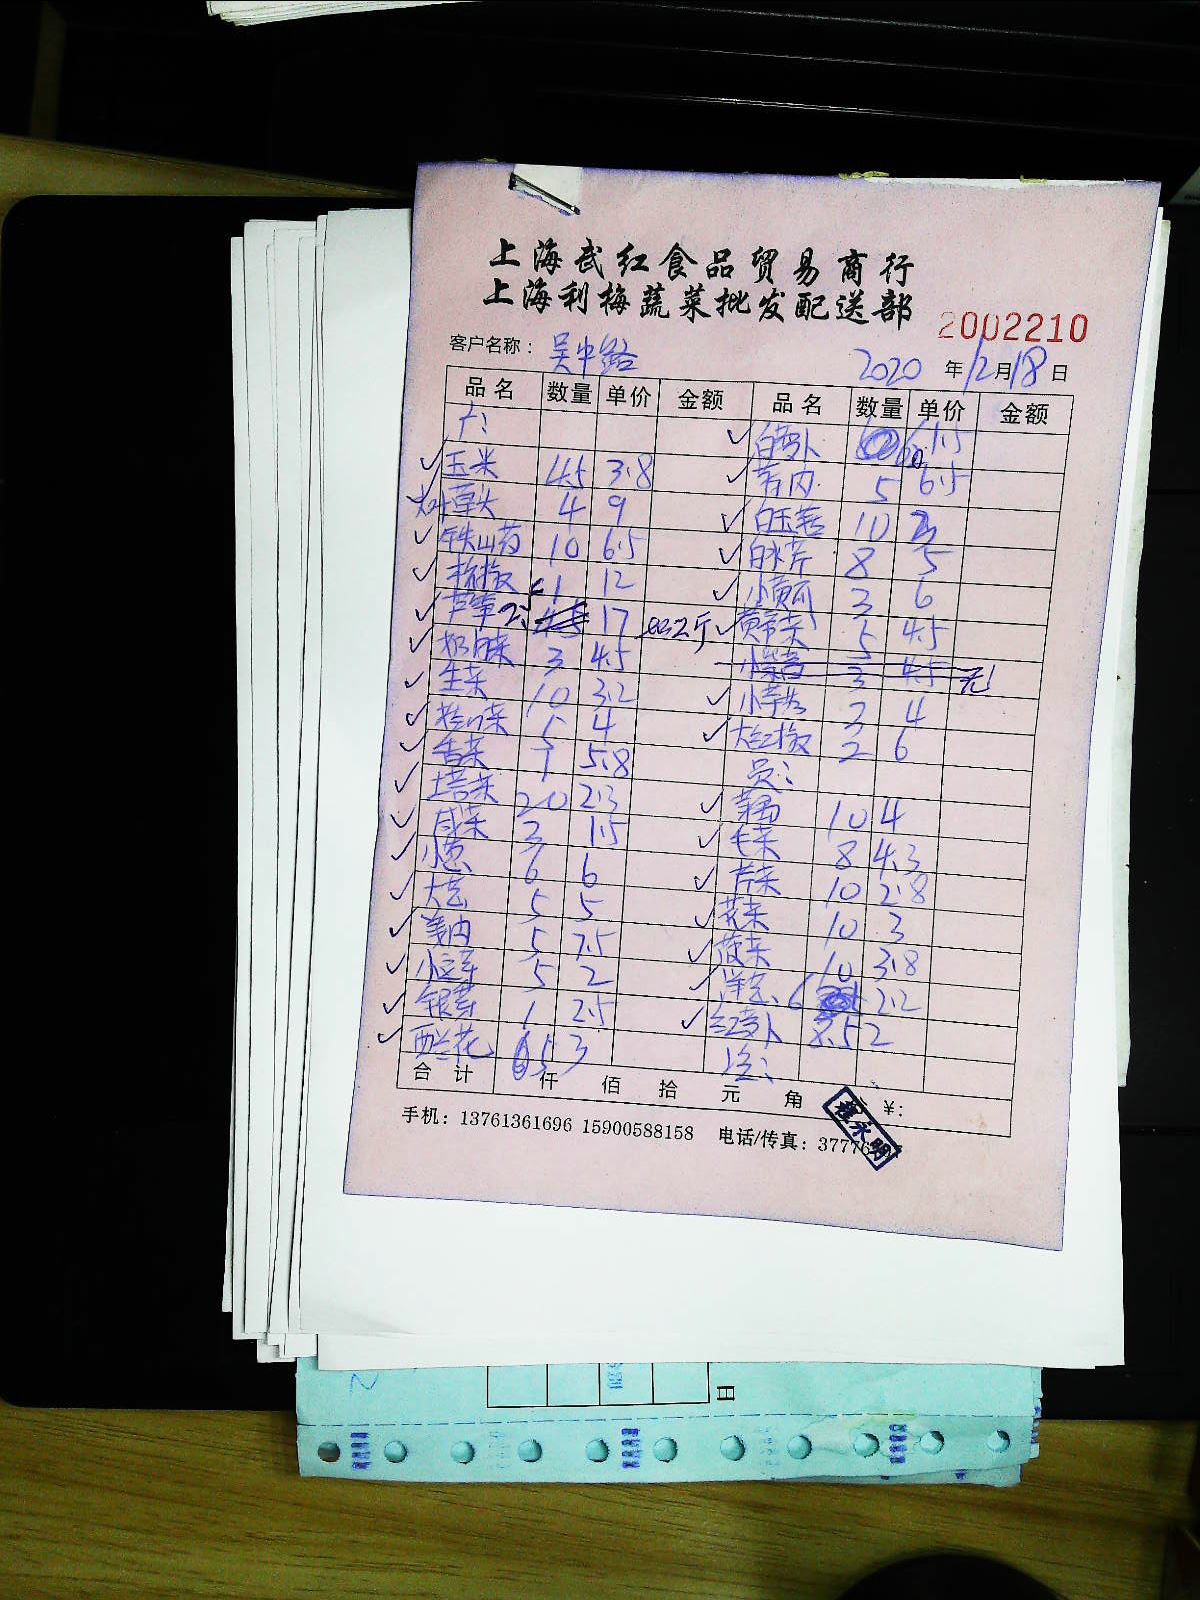 上海武红食品贸易商行
上海利梅蔬菜批发配送部
2002210
客户名称：吴中路
2020年12月18日
品名 数量 单价 金额 品名 数量 单价 金额
白萝卜 60 1.5
玉米 45 3.8 5 6.5
草头 4 9 白玉菇 10
铁山药 10 6.5 白水芹 8 5
1 12 小黄瓜 3 6
芦笋 2 17 2斤 5 4.5
奶白菜 3 4.5 3 4.5 无
生菜 10 3.2 小芋艿 3 4
5 4 大红椒 2 6
香菜 1 5.8 员：
塔菜 20 2.3 10 4
咸菜 3 1.5 毛菜 8 4.3
小葱 6 6 芹菜 10 2.8
5 5 花菜 10 3
姜肉 5 7.5 菠菜 10 3.8
5 2 洋葱 6 2.2
银芽 1 2.5 红萝卜 8.5 2
西兰花 65 3
合计 仟 佰 拾 元 角 ¥：
手机：13761361696 15900588158 电话/传真：37776
程永明
日